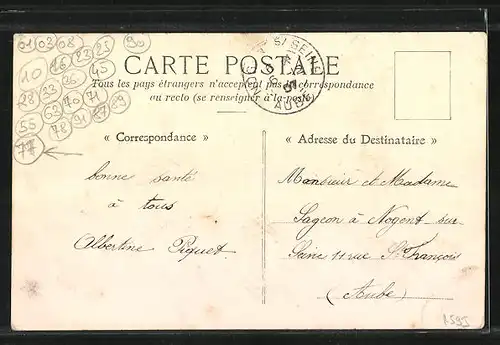 01 03 08 90
10 16 23 25
28 33 26 45
55 63 70 71
78 91
77
CARTE POSTALE
Tous les pays étrangers n'acceptent pas la correspondance
au recto (se renseigner à la poste)
« Correspondance »
« Adresse du Destinataire »
bonne santé
à tous
Albertine Piquet.
Monsieur et Madame
Sageon à Nogent sur
Seine 11 rue St François
(Aube)
1595